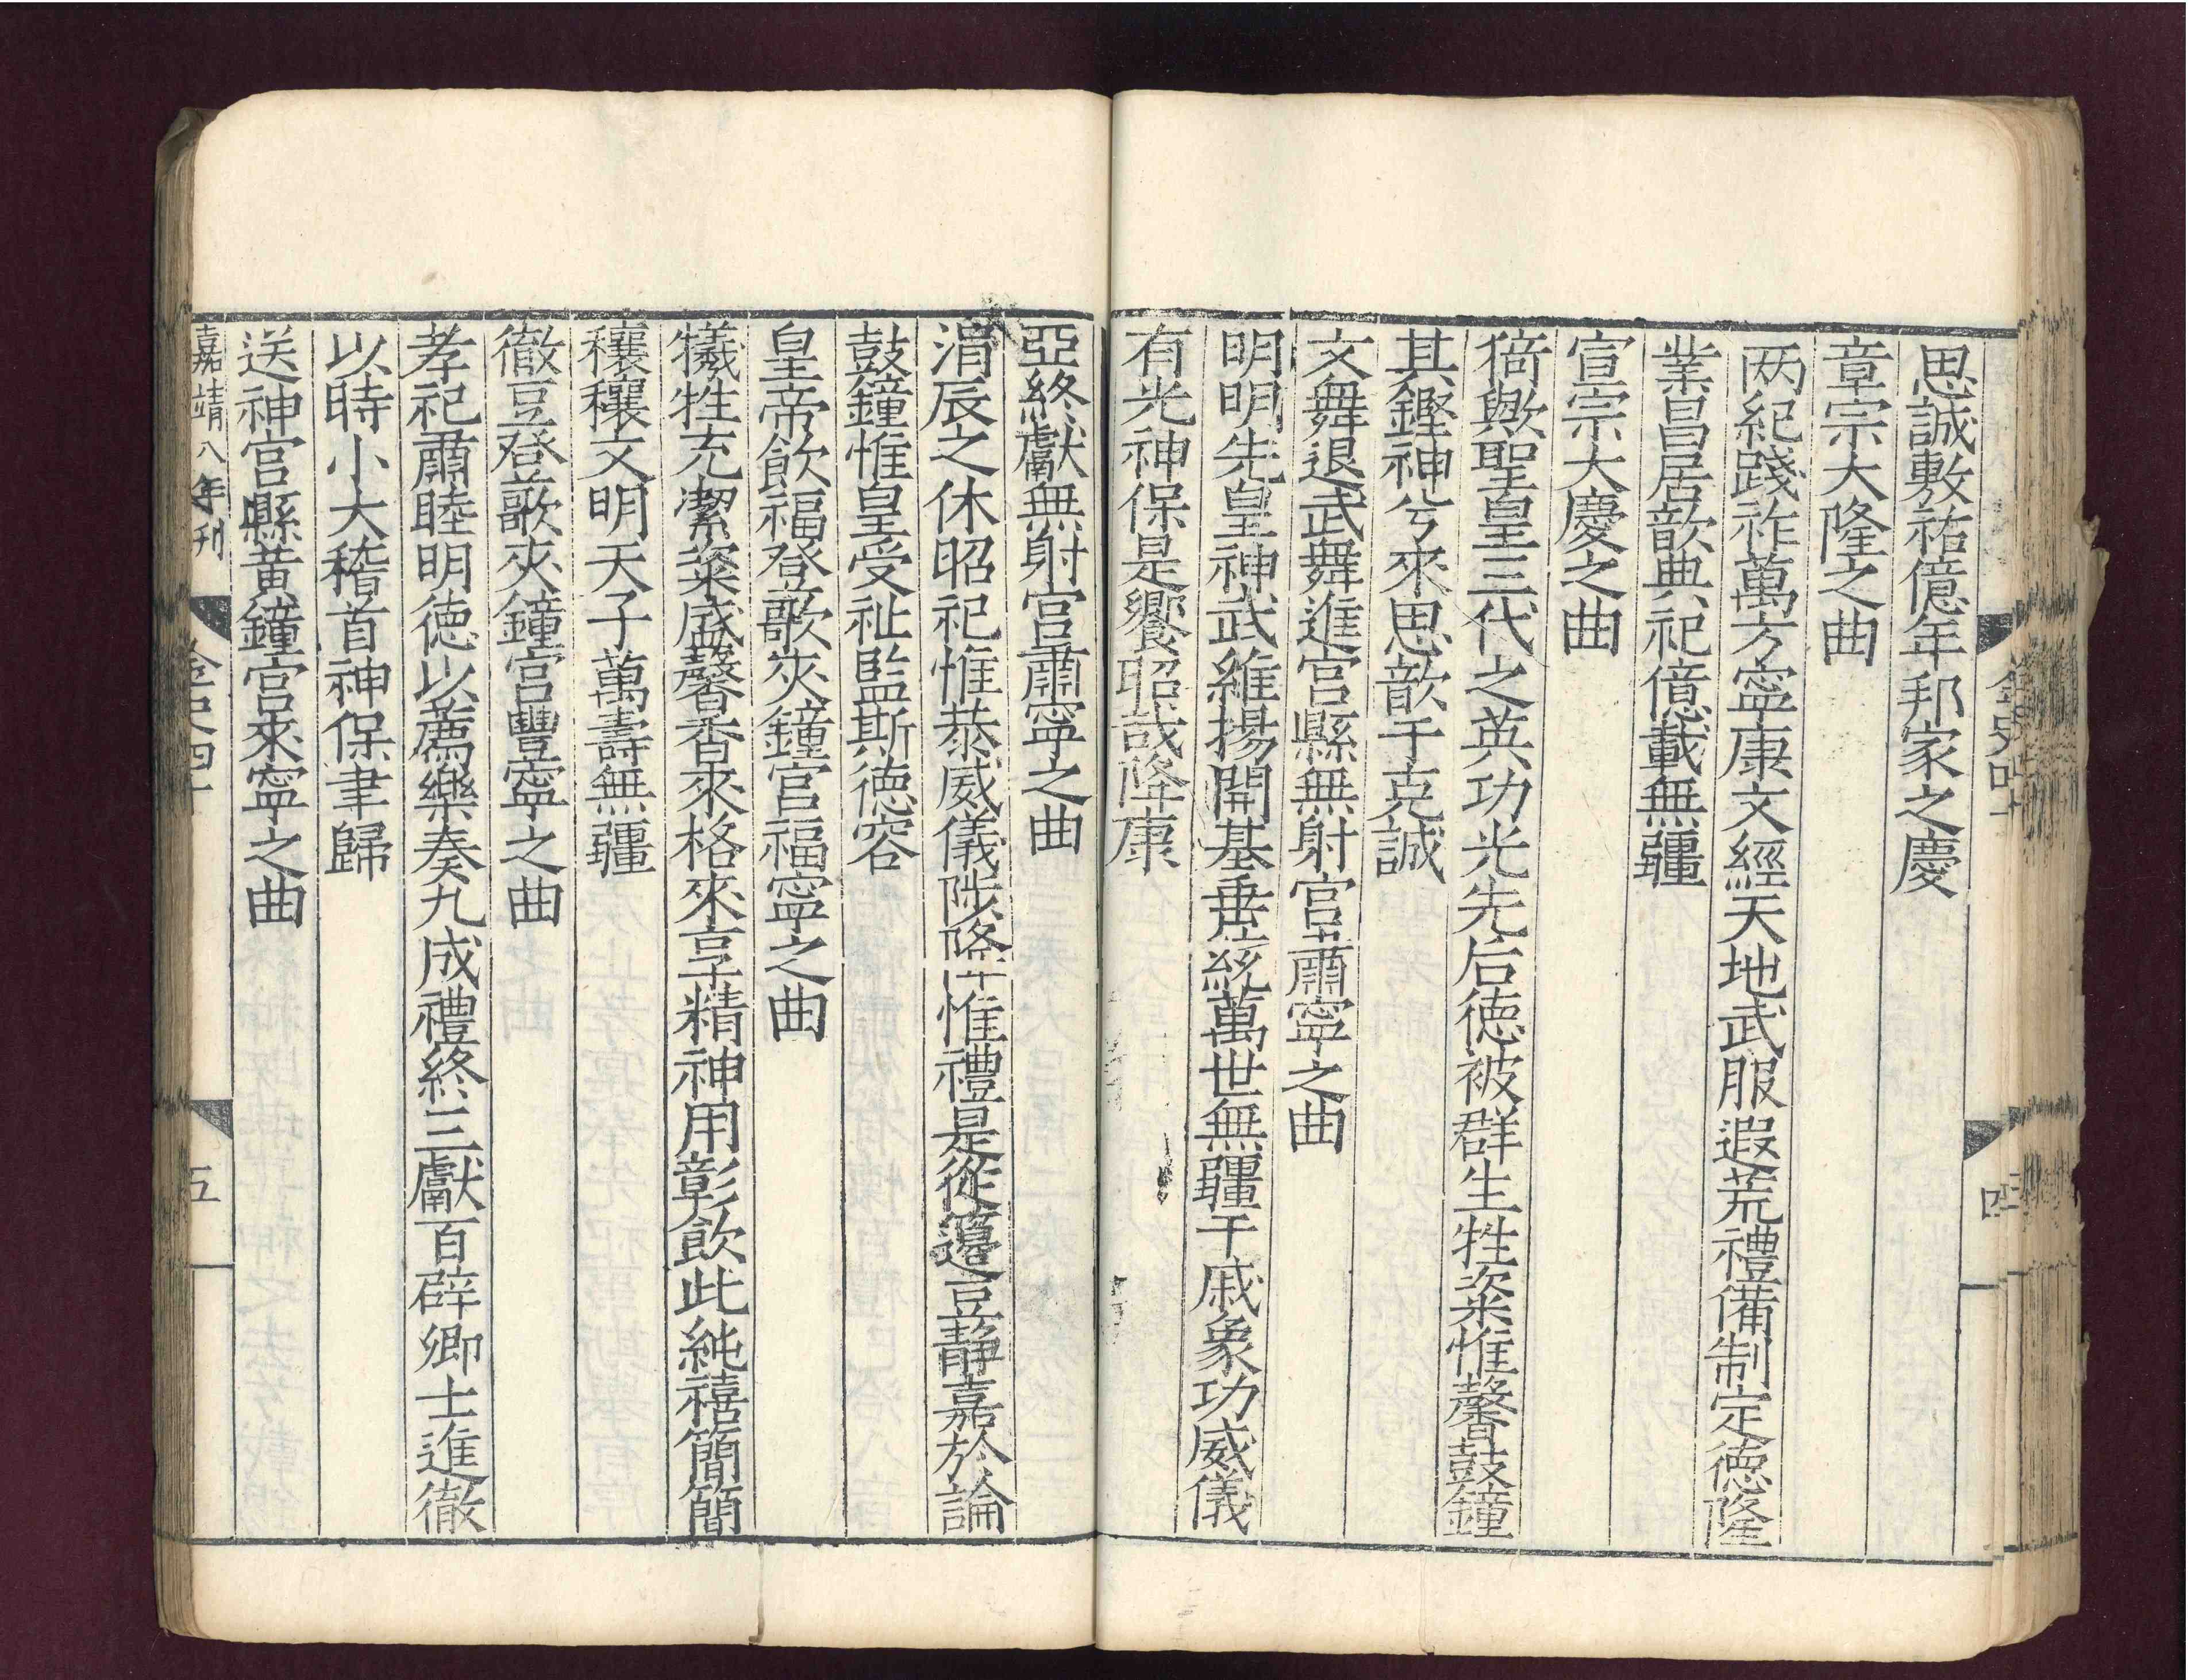 思誠敷祐億年邦家之慶
章宗大隆之曲
两紀踐祚萬方寧康文經天地武服遐荒禮備制定德隆
業昌居歆典祀億載無疆
宣宗大慶之曲
猗歟聖皇三代之英功光先后德被群生牲粢惟馨鼓鐘
其鏗神兮來思歆于克誠
文舞退武舞進宮縣無射宮肅寧之曲
明明先皇神武維揚開基垂統萬世無疆干戚象功威儀
有光神保是饗昭哉降康
亞終獻無射宮肅寧之曲
涓辰之休昭祀惟恭威儀陟降惟禮是從籩豆靜嘉於論
鼓鐘惟皇受祉監斯德容
皇帝飲福登歌夾鐘宮福寧之曲
犧牲充潔粢盛馨香來格來享精神用彰飲此純禧簡簡
穰穰文明天子萬壽無疆
徹豆登歌夾鐘宮豐寧之曲
孝祀肅睦明德以薦樂奏九成禮終三獻百辟卿士進徹
以時小大稽首神保聿歸
送神宮縣黃鐘宮來寧之曲
嘉靖八年刊
金史四十
五
金史四十
四